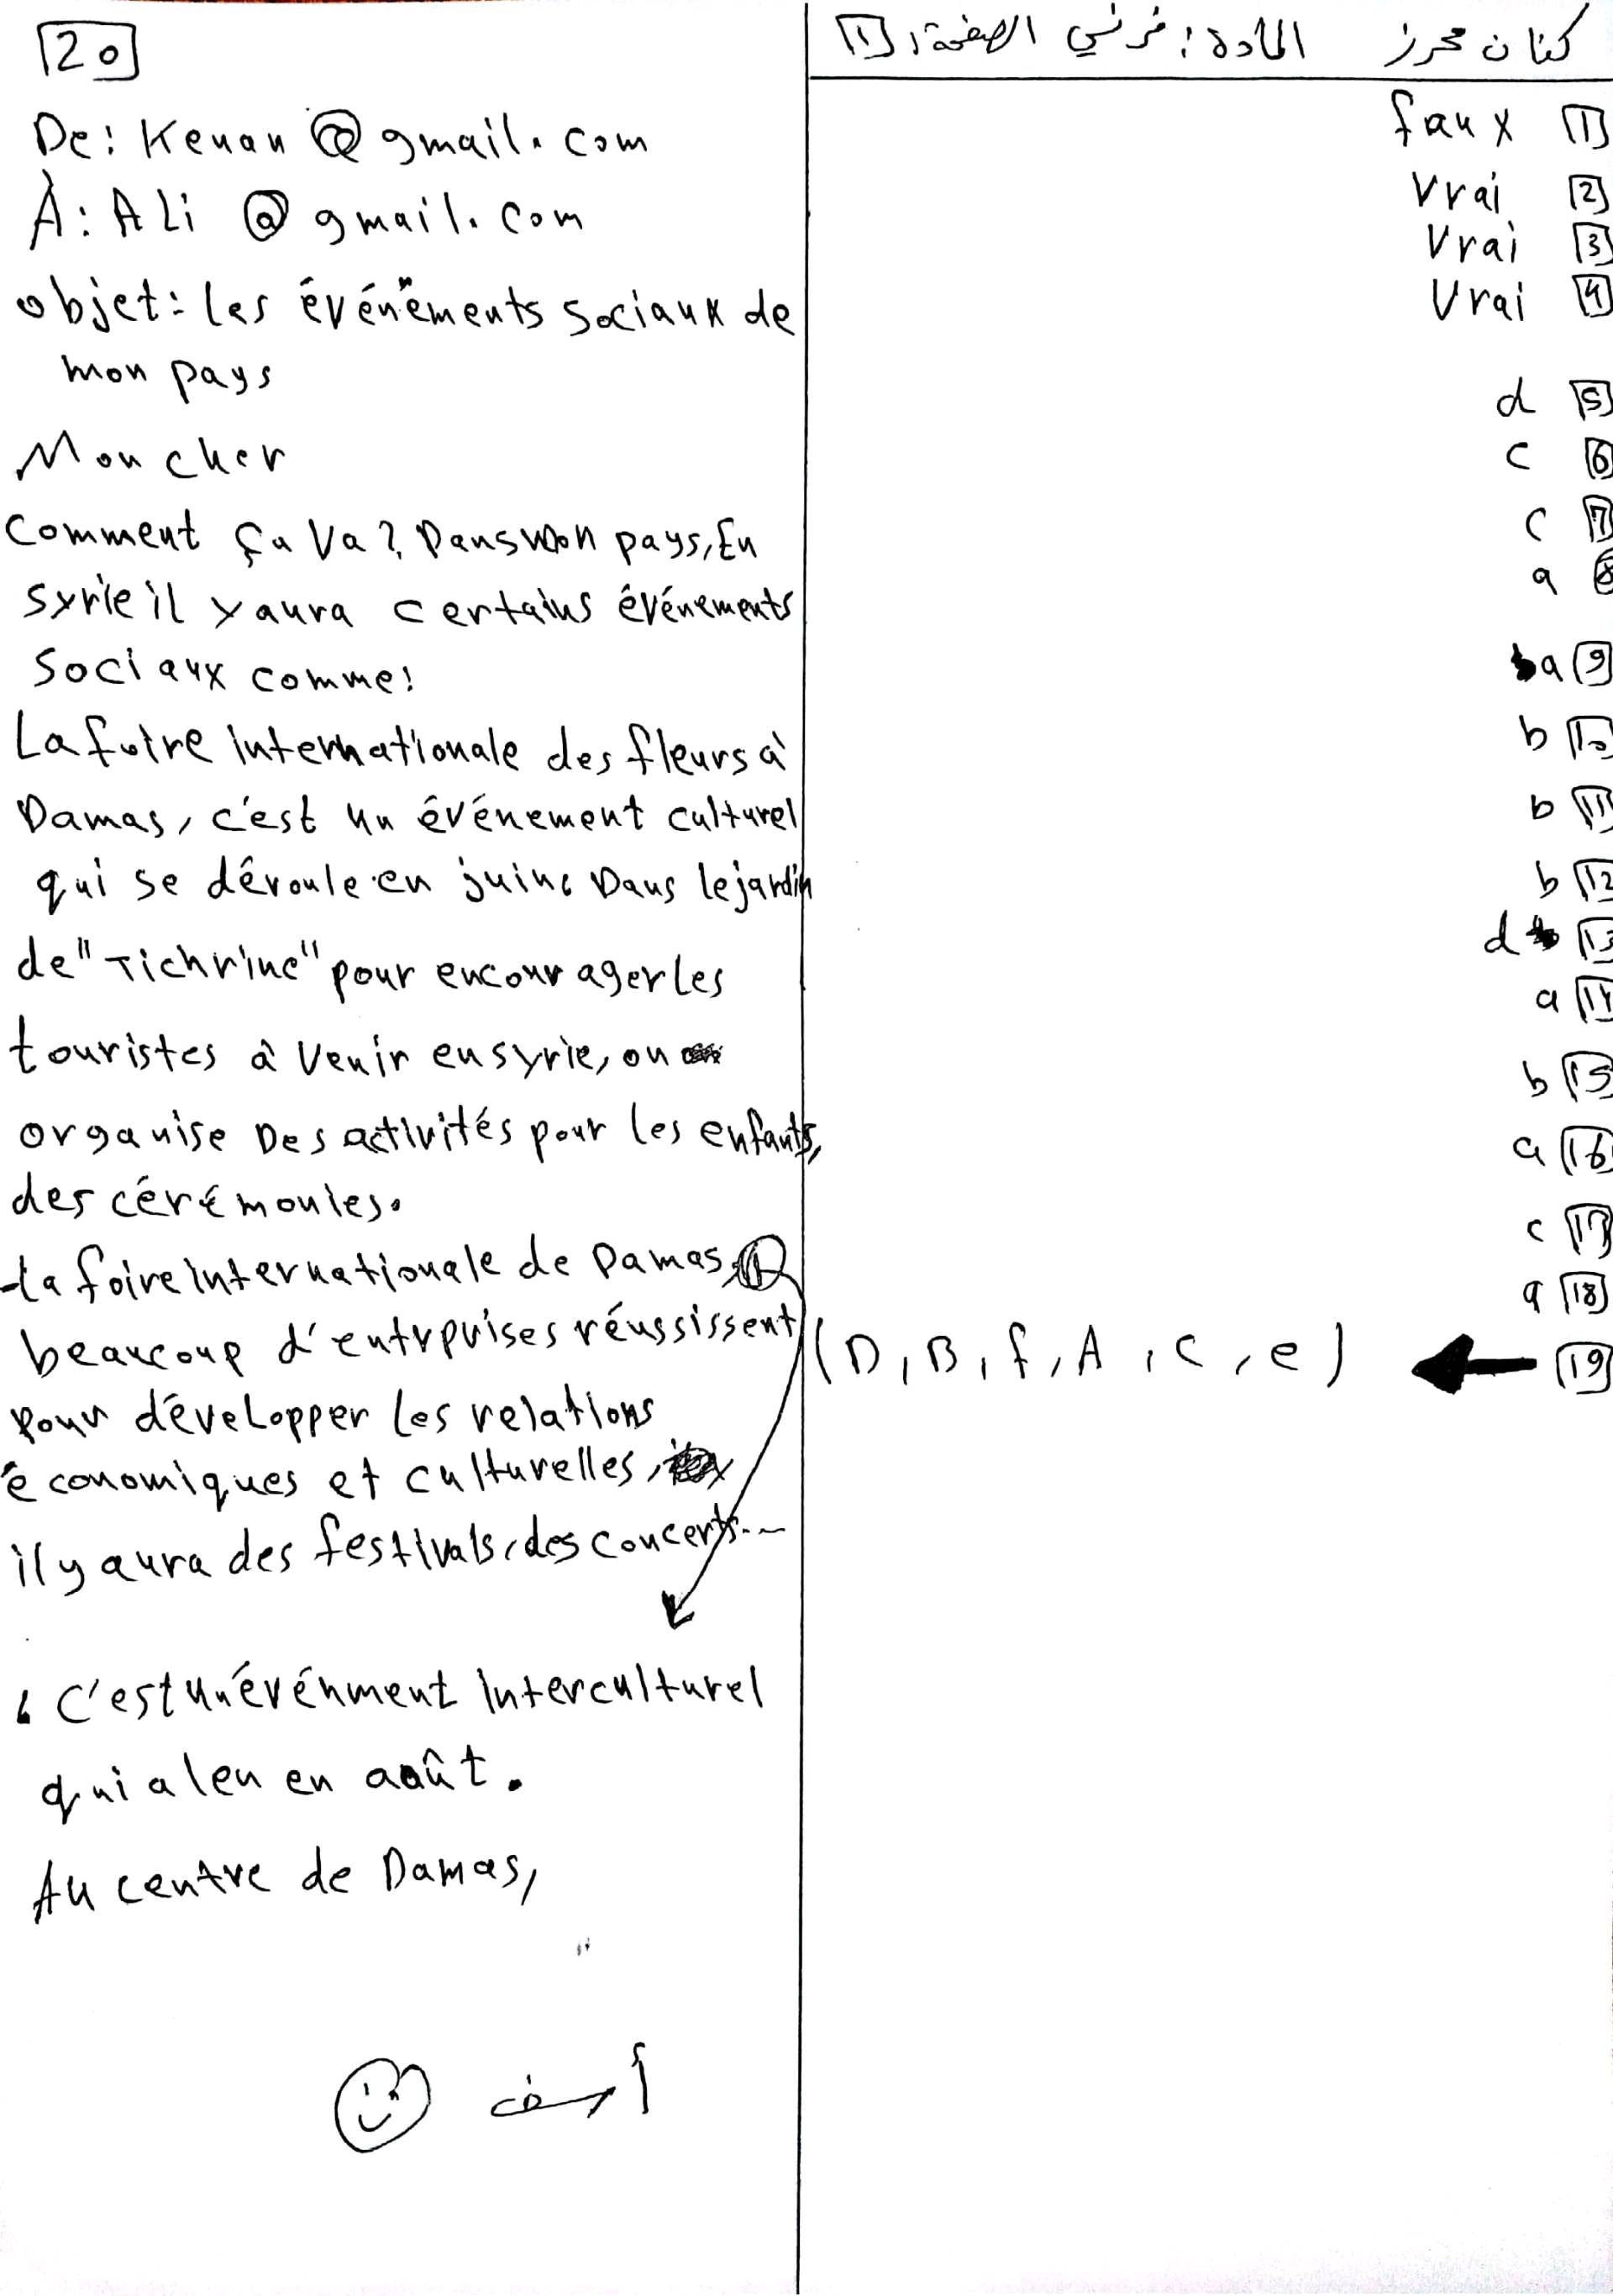 كنان محرز المادة: فرنسي الصفحة: [1]
faux [1]
vrai [2]
vrai [3]
vrai [4]
d [5]
c [6]
c [7]
a [8]
a [9]
b [10]
b [11]
b [12]
d [13]
a [14]
b [15]
a [16]
c [17]
a [18]
(D, B, f, A, c, e) ← [19]
[20]
De: Kenan @ gmail. com
À: ALi @ gmail. com
objet: les événements sociaux de
mon pays
Mon cher
comment ça va?, Dans mon pays, En
syrie il y aura certains événements
sociaux comme:
La foire internationale des fleurs à
Damas, c'est un événement culturel
qui se déroule en juin. Dans le jardin
de "Tichrine" pour encourager les
touristes à venir en syrie, on
organise Des activités pour les enfants,
des cérémonies.
-La foire internationale de Damas,
beaucoup d'entrprises réussissent
pour développer les relations
économiques et culturelles,
il y aura des festivals, des concerts...
, C'est un événment interculturel
qui a leu en août.
Au centre de Damas,
أسف